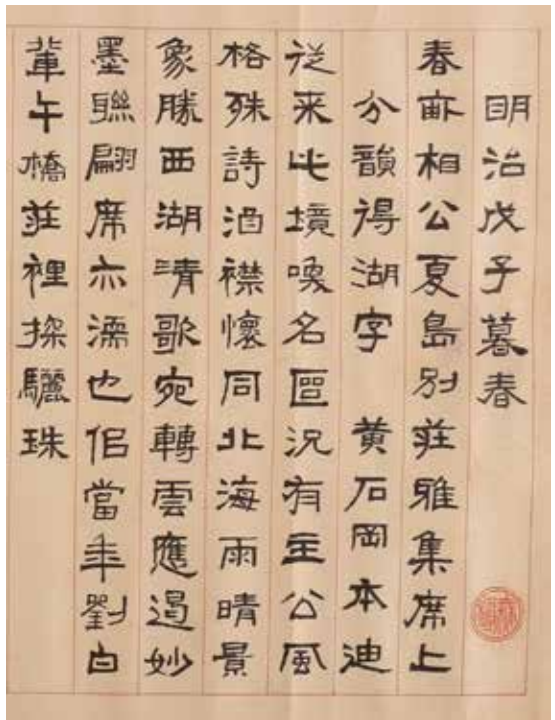 明治戊子暮春
春畝相公夏島別荘雅集席上
分韻得湖字　黄石岡本迪
従来此境喚名區况有主公風
格殊詩酒襟懐同北海雨晴景
象勝西湖清歌宛轉雲應遏妙
墨聯翩席亦濡也佀當年劉白
軰午橋荘裡探驪珠